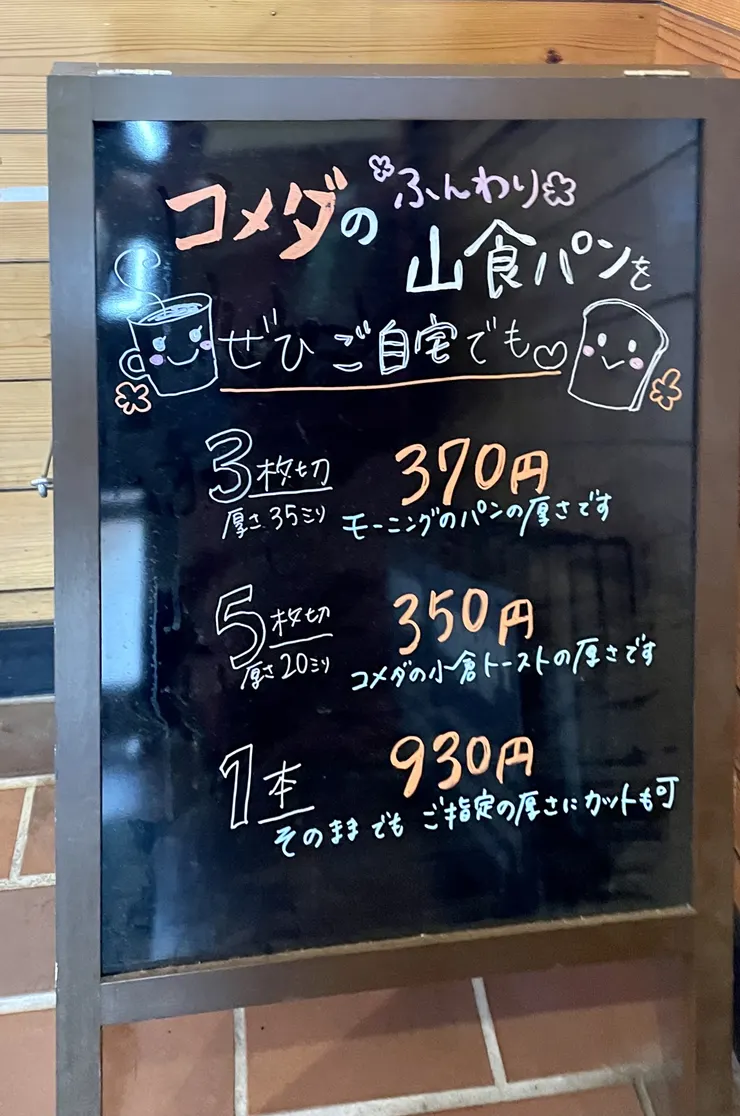 コメダの
ふんわり
山食パンを
ぜひ ご自宅でも♡
3枚切 370円
厚さ 35ミリ モーニングのパンの厚さです
5枚切 350円
厚さ 20ミリ コメダの小倉トーストの厚さです
1本 930円
そのままでも ご指定の厚さにカットも可